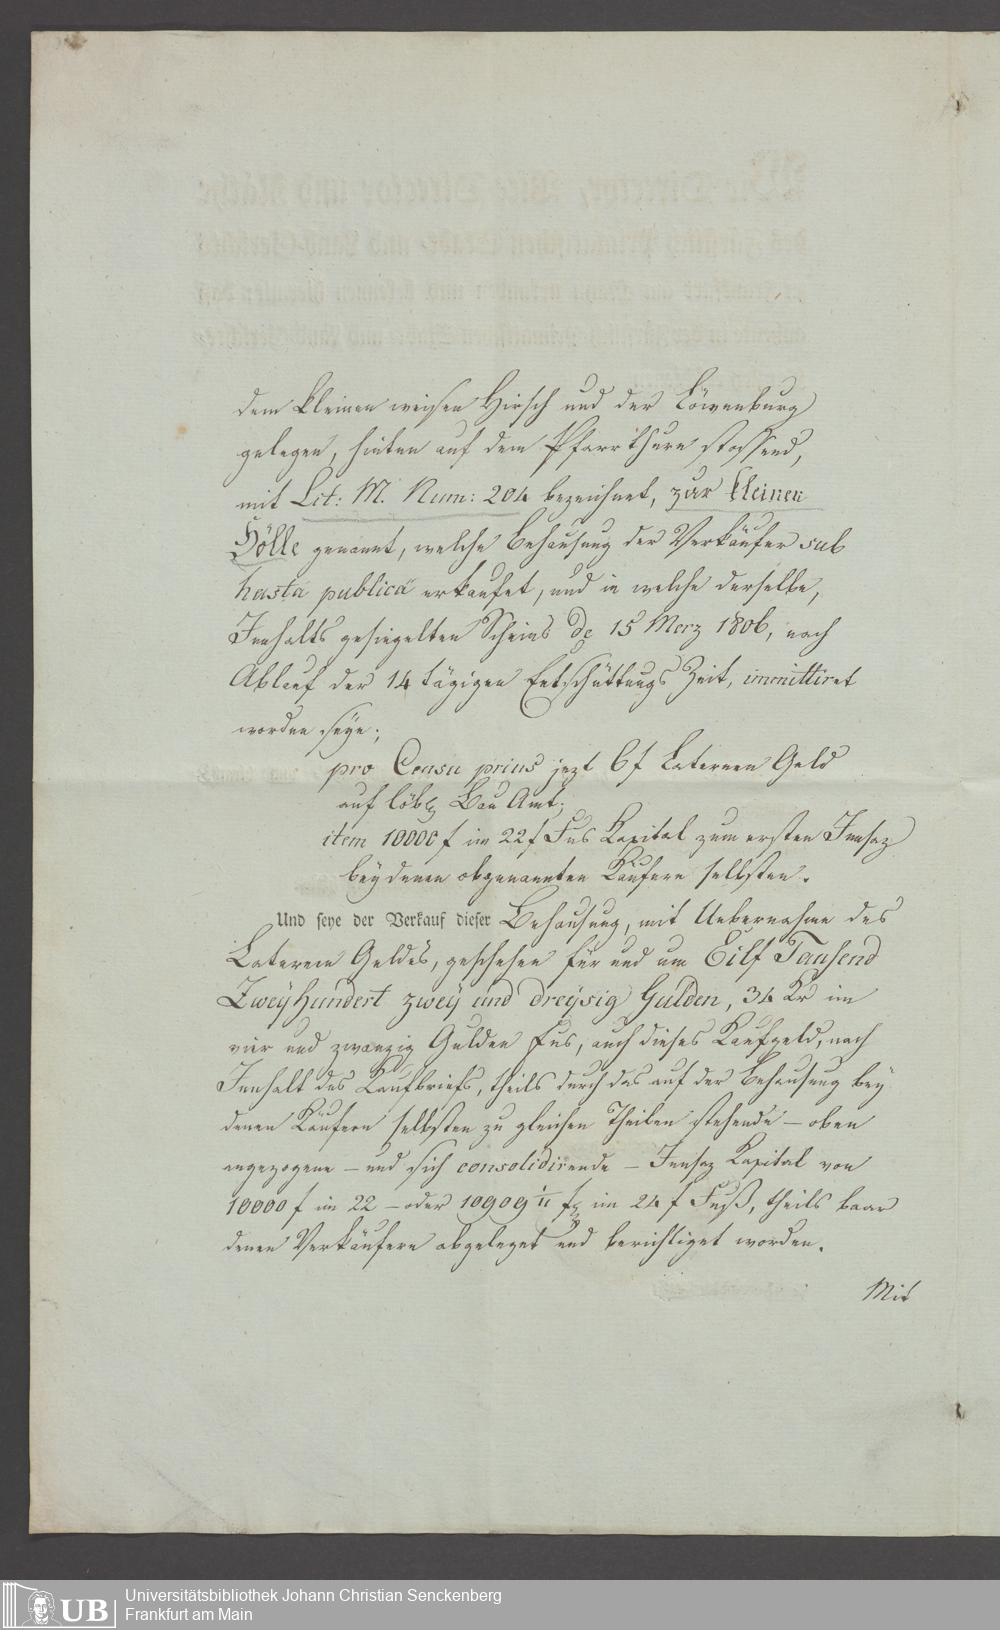 dem kleinen weisen Hirsch und der Löwenburg
gelegen, hinten auf dem Pfarrthurn stossend,
mit Lit: M. Num: 204 bezeichnet, zur kleinen
Hölle genannt, welche Behausung der Verkäufer sub
hasta publica erkaufet, und in welche derselbe,
Innhalts gesiegelten Scheins de 15 Merz 1806, nach
Ablauf der 14 tägigen Entschüttungs Zeit, immittiret
worden seye;
pro Censu prius jezt 6 f Laternen Geld
auf löbl Bau Amt;
item 10000 f im 22 f Fus Kapital zum ersten Insaz
bey denen obgenannten Käufern selbsten.
Und seye der Verkauf dieser Behausung, mit Uebernahme des
Laternen Geldes, geschehen für und um Eilf Tausend
Zweyhundert zwey und dreysig Gulden, 34 Kr im
vier und zwanzig Gulden Fus, auch dieses Kaufgeld, nach
Innhalt des Kaufbriefs, theils durch das auf der Behausung bey
denen Käufern selbsten zu gleichen Theilen stehende – oben
angezogene – und sich consolidirende – Insaz Kapital von
10000 f im 22 – oder 10909 1/11 f im 24 f Fuß, theils baar
denen Verkäufern abgeleget und berichtiget worden.
Mit
UB Universitätsbibliothek Johann Christian Senckenberg
Frankfurt am Main